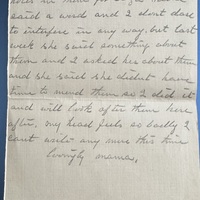 said a word and I dont dare
to interfere in any way, but last
week she said something about
them and I asked her about them
and she said she didnt have
time to mend them so I did it
and will look after them here
after, my head feels so badly I
cant write any more this time
lovingly mama.